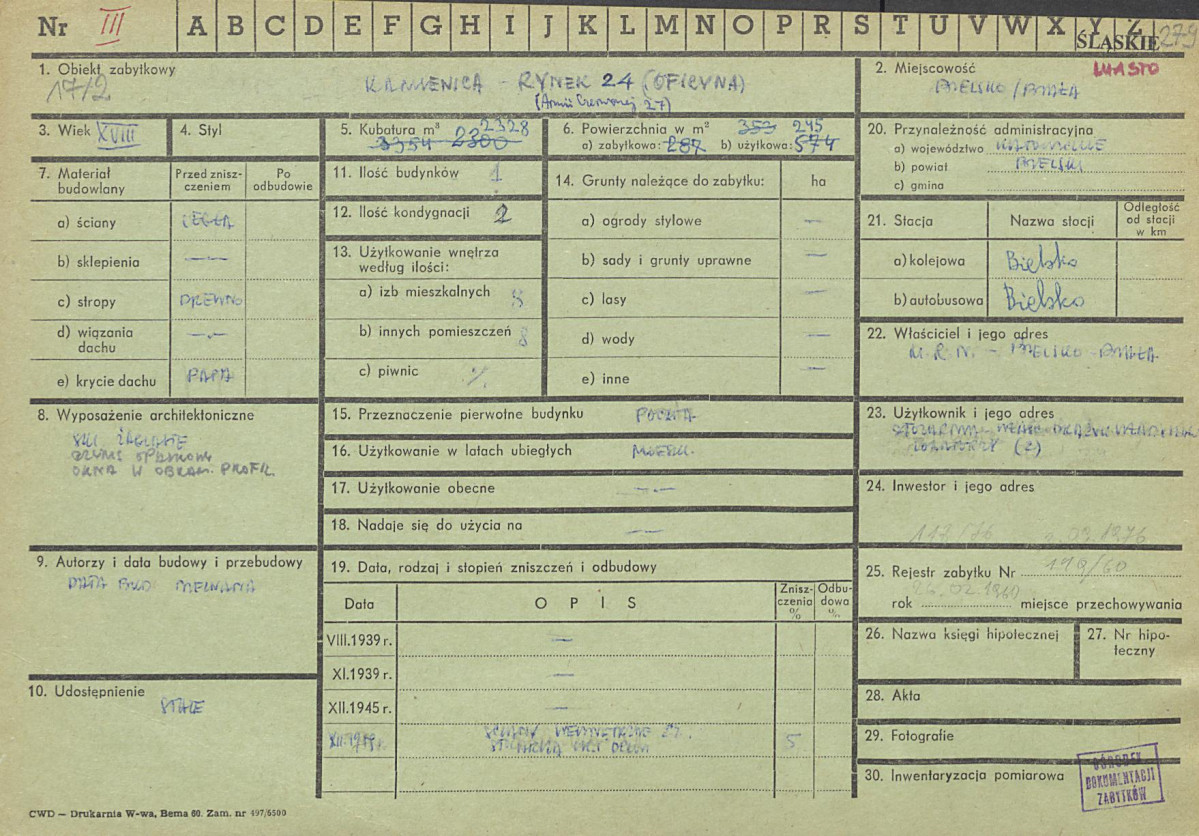 Nr III A B C D E F G H I J K L M N O P R S T U V W X Y Z
ŚLĄSKIE 279
1. Obiekt zabytkowy
17/2
KAMIENICA - RYNEK 24 (OFICYNA)
(Armii Czerwonej 27)
2. Miejscowość
MIASTO
BIELSKO / BIAŁA
3. Wiek XVIII
4. Styl
5. Kubatura m³ 2328
3354 2300
6. Powierzchnia w m² 353 245
a) zabytkowa: 287 b) użytkowa: 574
20. Przynależność administracyjna
a) województwo KATOWICKIE
b) powiat BIELSKI
c) gmina
7. Materiał budowlany
Przed zniszczeniem
Po odbudowie
a) ściany CEGŁA
b) sklepienia —„—
c) stropy DREWNO
d) wiązania dachu —„—
e) krycie dachu PAPA
11. Ilość budynków 1
12. Ilość kondygnacji 2
13. Użytkowanie wnętrza według ilości:
a) izb mieszkalnych 8
b) innych pomieszczeń 8
c) piwnic %
14. Grunty należące do zabytku: ha
a) ogrody stylowe —
b) sady i grunty uprawne —
c) lasy —
d) wody —
e) inne —
21. Stacja
Nazwa stacji
Odległość od stacji w km
a) kolejowa Bielsko
b) autobusowa Bielsko
22. Właściciel i jego adres
M.R.N. - BIELSKO - BIAŁA
8. Wyposażenie architektoniczne
OKNA W OBRAM. PROFIL.
15. Przeznaczenie pierwotne budynku
16. Użytkowanie w latach ubiegłych MIESZK.
17. Użytkowanie obecne —„—
18. Nadaje się do użycia na —„—
23. Użytkownik i jego adres
LOKATORZY (2)
24. Inwestor i jego adres
117/76 z .09.1976
9. Autorzy i data budowy i przebudowy
DATA BUD. NIEZNANA
19. Data, rodzaj i stopień zniszczeń i odbudowy
Data
O P I S
Zniszczenia %
Odbudowa %
VIII.1939 r. —
XI.1939 r. —
XII.1945 r. —
XII.1959 r. ŚCIANY WEWNĘTRZNE
5
25. Rejestr zabytku Nr 119/60
26.02.1960
rok miejsce przechowywania
26. Nazwa księgi hipotecznej
27. Nr hipoteczny
10. Udostępnienie
STAŁE
28. Akta
29. Fotografie
30. Inwentaryzacja pomiarowa
OŚRODEK
DOKUMENTACJI
ZABYTKÓW
CWD — Drukarnia W-wa, Bema 60. Zam. nr 497/6500